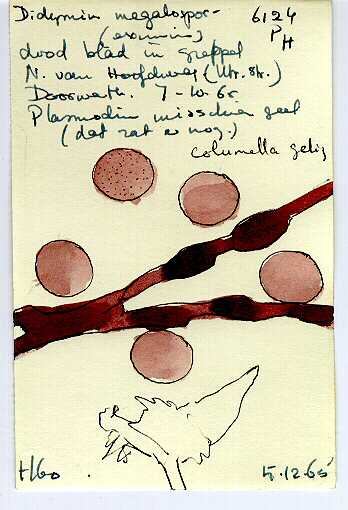 Didymium megalospor-
6124
(eximium)
PH
dood blad in greppel
N. van Hoofdweg (Utr. str.)
Doorwerth. 7-10-65
Plasmodium misschien geel
(dat zat er nog.)
columella gelig
5.12.65